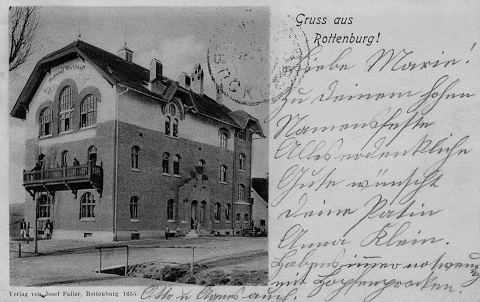 Gruss aus
Rottenburg!
Liebe Marie!
Zu Deinem hohen
Namensfeste
Alles erdenkliche
Gute wünscht
Deine Patin
Anna Klein.
Haben immer notwend
mit
Otto u. auch.
Verlag von Josef Fuller, Rottenburg 1655.